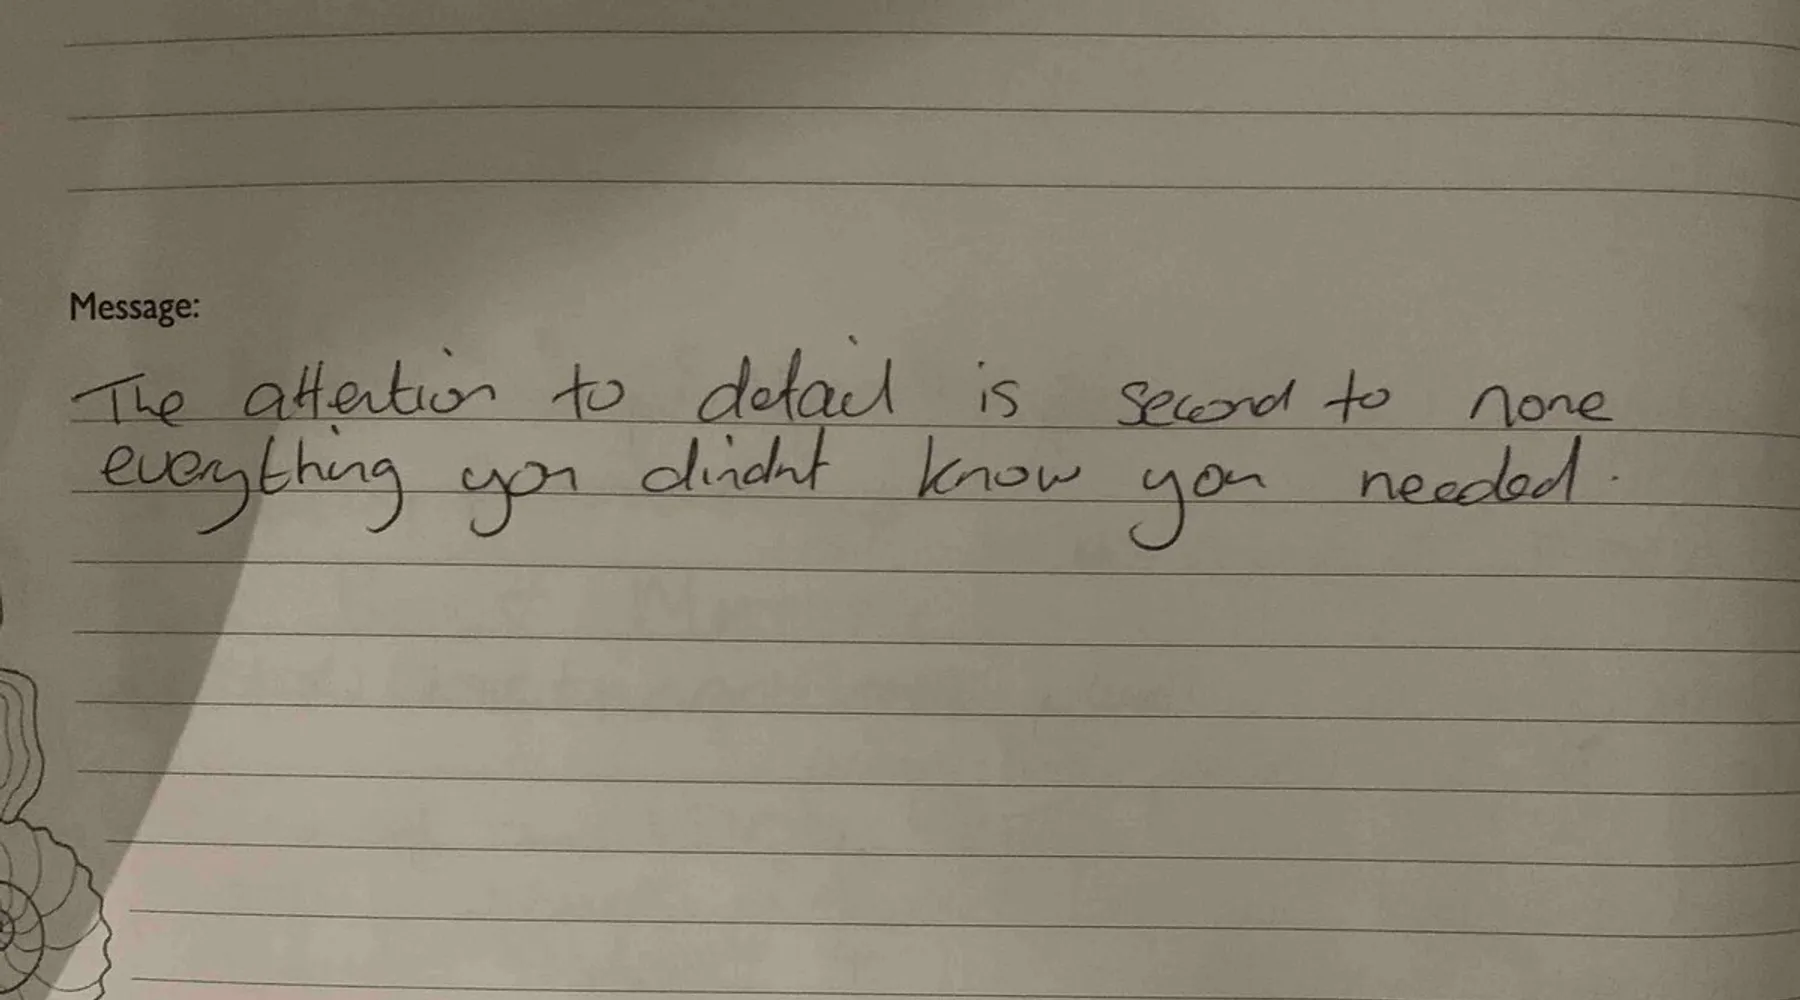 Message:
The attention to detail is second to none
everything you dindnt know you needed.